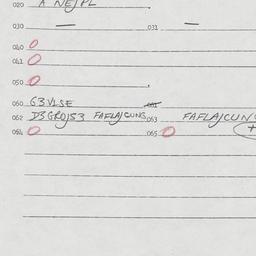 020 A NEJPL
030 — 031 —
040 0
041 0
050 0
060 G3VLSE
062 D3GROJS3 FAFLAJCUNG 063 FAFLAJCUN
064 0 065 0